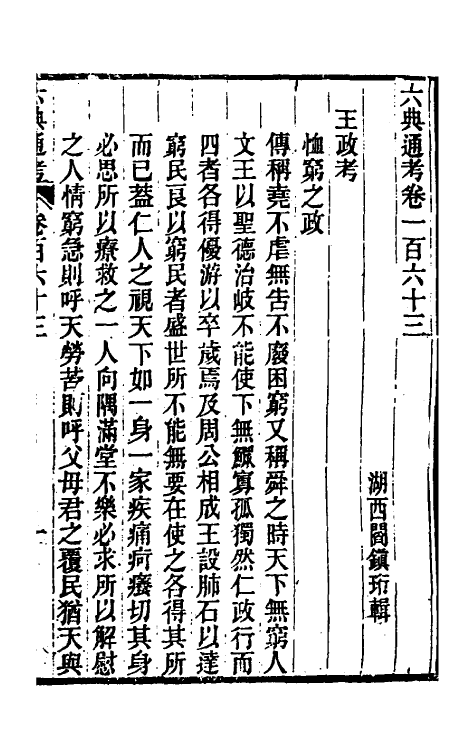 六典通考卷一百六十三
湖西閻鎮珩輯
王政考
恤窮之政
傳稱堯不虐無告不廢困窮又稱舜之時天下無窮人
文王以聖德治岐不能使下無鰥寡孤獨然仁政行而
四者各得優游以卒歲焉及周公相成王設肺石以達
窮民良以窮民者盛世所不能無要在使之各得其所
而已葢仁人之視天下如一身一家疾痛疴癢切其身
必思所以療救之一人向隅滿堂不樂必求所以解慰
之人情窮急則呼天勞苦則呼父母君之覆民猶天與
六典通考
卷百六十三
一